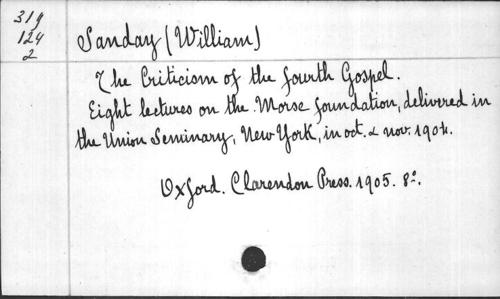 319
124
2
Sanday (William)
The Criticism of the fourth Gospel.
Eight lectures on the Morse foundation, delivered in
the Union Seminary, New York, in oct. & nov. 1904.
Oxford. Clarendon Press. 1905. 8º.